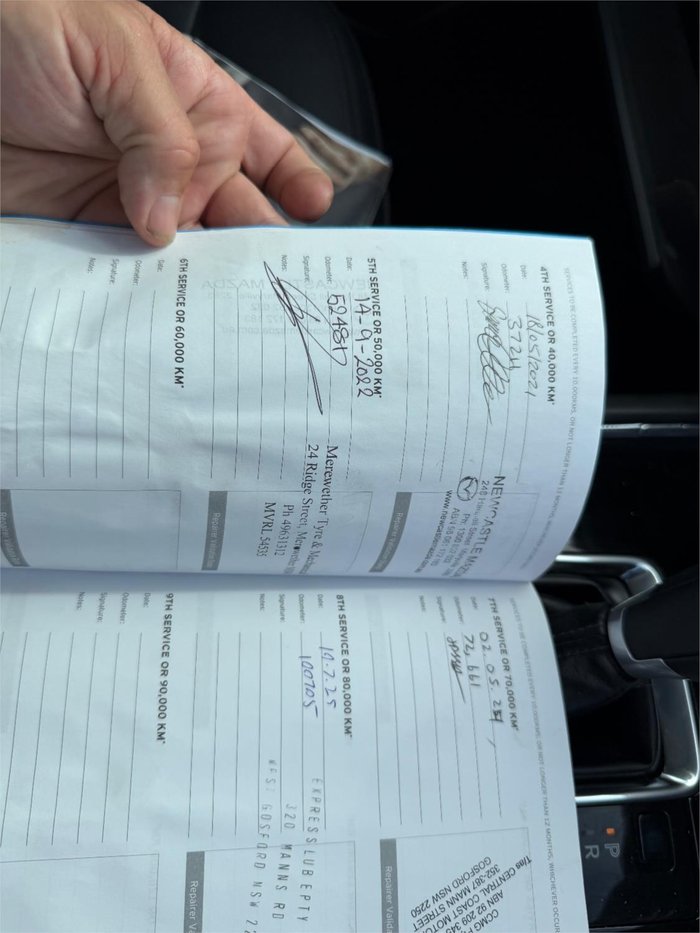 SERVICES TO BE COMPLETED EVERY 10,000KMS, OR NOT LONGER THAN 12 MONTHS, WHICHEVER
4TH SERVICE OR 40,000 KM*
Date: 18/05/2021
Odometer: 37211
Signature:
Notes:
NEWCASTLE MAZDA
Repairer Validation
5TH SERVICE OR 50,000 KM*
Date: 14-9-2022
Odometer: 52481
Signature:
Notes:
Merewether Tyre &
24 Ridge Street,
Ph 49631312
MVRL 54535
Repairer Validation
6TH SERVICE OR 60,000 KM*
Date:
Odometer:
Signature:
Notes:
Repairer Validation
SERVICES TO BE COMPLETED EVERY 10,000KMS, OR NOT LONGER THAN 12 MONTHS, WHICHEVER OCCUR
7TH SERVICE OR 70,000 KM*
Date: 02.05.24
Odometer: 72,661
Signature:
Notes:
CCMG
ABN 92 209
T/as CENTRAL COAST MOTOR
352-387 MANN STREET
GOSFORD NSW 2250
Repairer Valida
8TH SERVICE OR 80,000 KM*
Date: 14.7.25
Odometer: 100705
Signature:
Notes:
EXPRESS LUBE PTY
320 MANNS RD
WEST GOSFORD NSW 22
Repairer Valid
9TH SERVICE OR 90,000 KM*
Date:
Odometer:
Signature:
Notes:
P
R